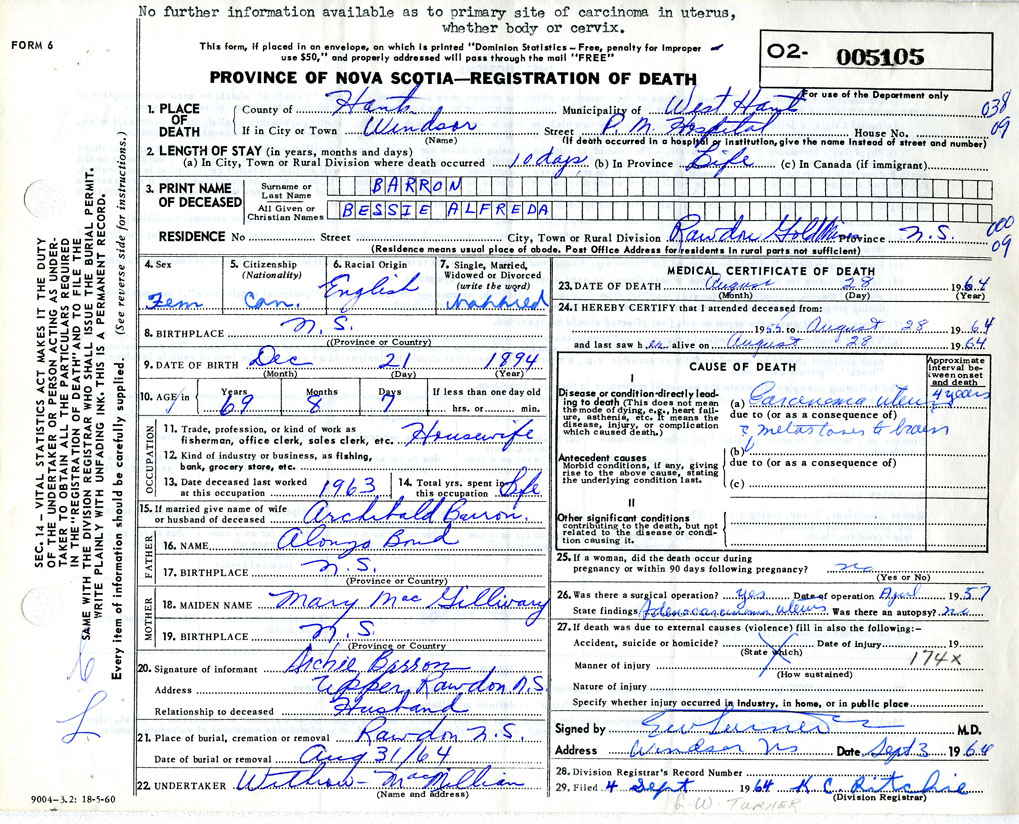 No further information available as to primary site of carcinoma in uterus,
whether body or cervix.
FORM 6
This form, if placed in an envelope, on which is printed "Dominion Statistics – Free, penalty for improper
use $50," and properly addressed will pass through the mail "FREE"
O2- 005105
PROVINCE OF NOVA SCOTIA—REGISTRATION OF DEATH
For use of the Department only
1. PLACE OF DEATH
County of Hants Municipality of West Hants 038
If in City or Town Windsor Street P. M. Hospital House No. 09
(Name) (If death occurred in a hospital or institution, give the name instead of street and number)
2. LENGTH OF STAY (in years, months and days)
(a) In City, Town or Rural Division where death occurred 10 days (b) In Province Life (c) In Canada (if immigrant)
3. PRINT NAME OF DECEASED
Surname or Last Name BARRON
All Given or Christian Names BESSIE ALFREDA
RESIDENCE No Street City, Town or Rural Division Rawdon Gold Mines Province N.S. 000
09
(Residence means usual place of abode. Post Office Address for residents in rural parts not sufficient)
4. Sex
Fem
5. Citizenship
(Nationality)
Can.
6. Racial Origin
English
7. Single, Married,
Widowed or Divorced
(write the word)
Married
8. BIRTHPLACE N.S.
((Province or Country)
9. DATE OF BIRTH Dec 21 1894
(Month) (Day) (Year)
10. AGE in Years Months Days If less than one day old
69 8 7 hrs. or min.
OCCUPATION
11. Trade, profession, or kind of work as
fisherman, office clerk, sales clerk, etc. Housewife
12. Kind of industry or business, as fishing,
bank, grocery store, etc.
13. Date deceased last worked
at this occupation 1963
14. Total yrs. spent in
this occupation Life
15. If married give name of wife
or husband of deceased Archibald Barron.
FATHER
16. NAME Alonzo Bond
17. BIRTHPLACE N.S.
(Province or Country)
MOTHER
18. MAIDEN NAME Mary Mac Gillivary
19. BIRTHPLACE N.S.
(Province or Country
20. Signature of informant Archie Barron
Address Upper Rawdon N.S.
Relationship to deceased Husband
21. Place of burial, cremation or removal Rawdon N.S.
Date of burial or removal Aug 31/64
22. UNDERTAKER Withrow - MacMillian
(Name and address)
9004–3.2: 18-5-60
MEDICAL CERTIFICATE OF DEATH
23. DATE OF DEATH August 28 1964
(Month) (Day) (Year)
24. I HEREBY CERTIFY that I attended deceased from:
to August 28 1964
and last saw her alive on August 28 1964
CAUSE OF DEATH
Approximate
interval be-
tween onset
and death
I
Disease or condition directly lead-
ing to death (This does not mean
the mode of dying, e.g., heart fail-
ure, asthenia, etc. It means the
disease, injury, or complication
which caused death.)
(a) Carcinoma uterus 4 years
due to (or as a consequence of)
metastases to brain
(b)
due to (or as a consequence of)
(c)
Antecedent causes
Morbid conditions, if any, giving
rise to the above cause, stating
the underlying condition last.
II
Other significant conditions
contributing to the death, but not
related to the disease or condi-
tion causing it.
25. If a woman, did the death occur during
pregnancy or within 90 days following pregnancy? no
(Yes or No)
26. Was there a surgical operation? yes Date of operation April 1957
State findings Adenocarcinoma uterus Was there an autopsy? no
27. If death was due to external causes (violence) fill in also the following:–
Accident, suicide or homicide? Date of injury 19
(State which)
174x
Manner of injury
(How sustained)
Nature of injury
Specify whether injury occurred in industry, in home, or in public place
Signed by G W Turner M.D.
Address Windsor NS Date Sept 3 1964
28. Division Registrar's Record Number
29. Filed 4 Sept 1964 K C Ritchie
(Division Registrar)
G. W. TURNER
SEC. 14 – VITAL STATISTICS ACT MAKES IT THE DUTY
OF THE UNDERTAKER OR PERSON ACTING AS UNDER-
TAKER TO OBTAIN ALL THE PARTICULARS REQUIRED
IN THE "REGISTRATION OF DEATH" AND TO FILE THE
SAME WITH THE DIVISION REGISTRAR WHO SHALL ISSUE THE BURIAL PERMIT.
WRITE PLAINLY WITH UNFADING INK. THIS IS A PERMANENT RECORD.
Every item of information should be carefully supplied. (See reverse side for instructions.)